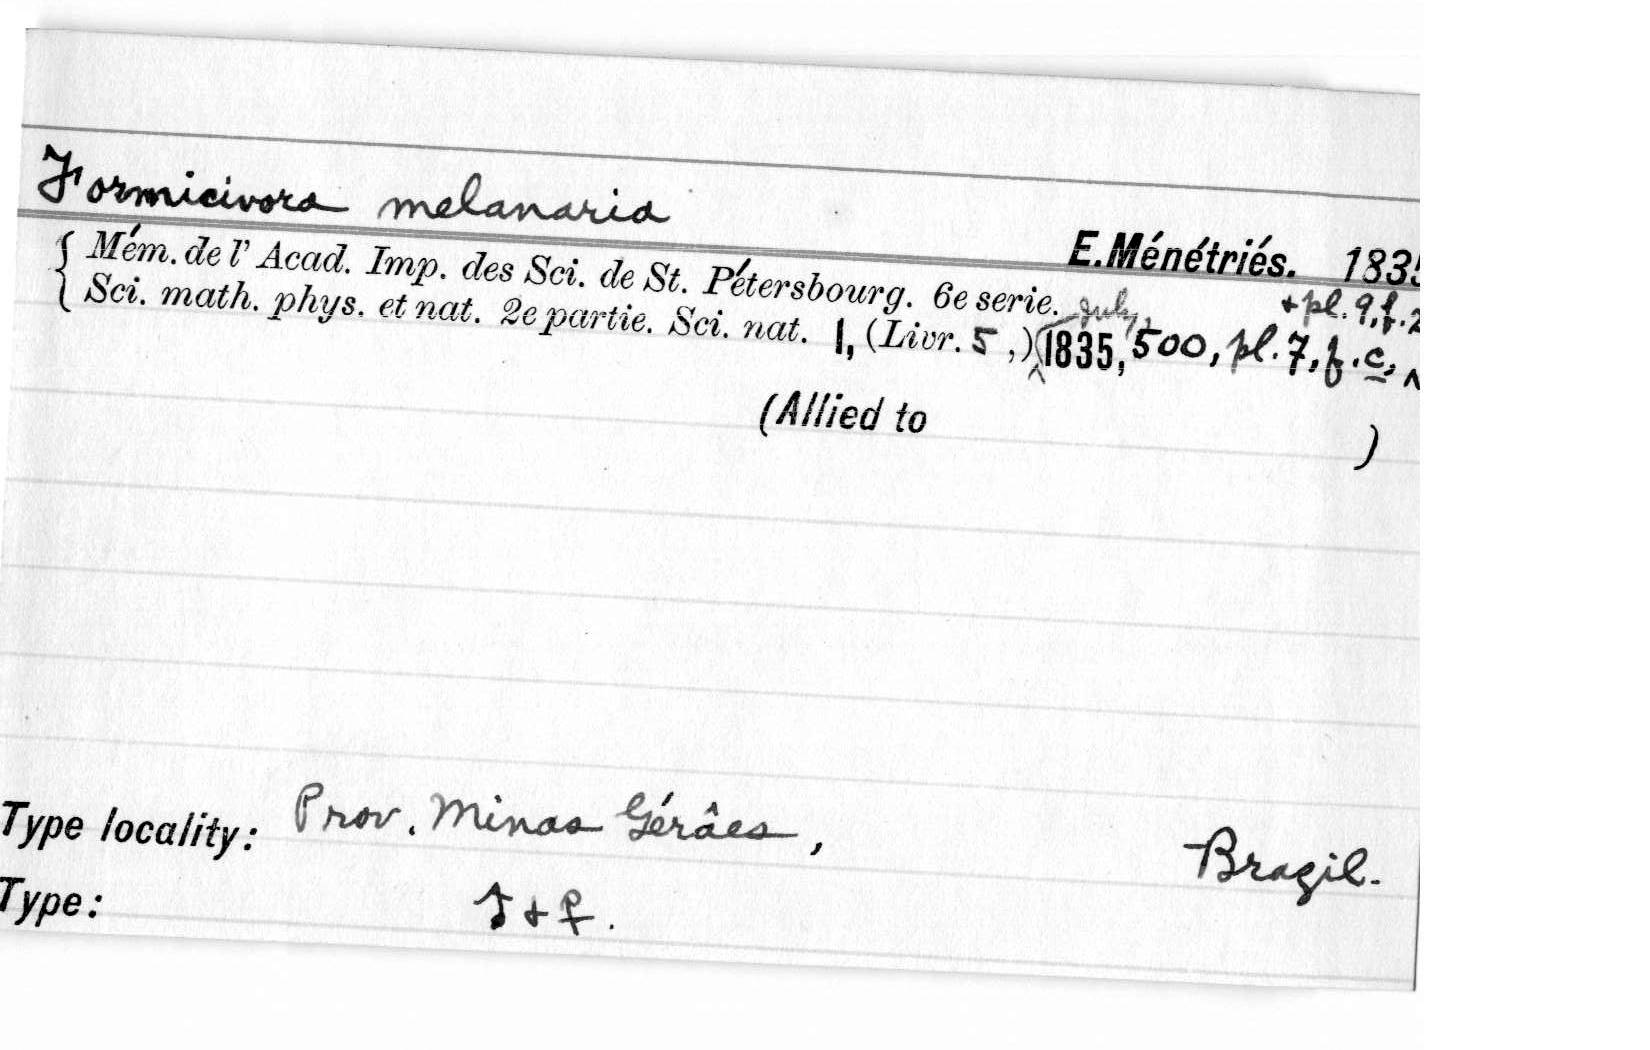 Formicivora melanaria
E.Ménétriés. 1835
Mém. de l' Acad. Imp. des Sci. de St. Pétersbourg. 6e serie. July, + pl. 9, f. 2
Sci. math. phys. et nat. 2e partie. Sci. nat. 1, (Livr. 5 ,) 1835, 500, pl. 7, f. c,
(Allied to )
Type locality: Prov. Minas Gérâes, Brazil.
Type: ♂ + ♀.